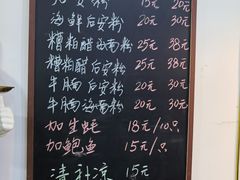 后安粉 15元 20元
海鲜后安粉 20元 30元
糟粕醋海南粉 25元 38元
糟粕醋后安粉 25元 38元
牛腩后安粉 20元 30元
牛腩海南粉 20元 30元
加生蚝 18元/10只
加鲍鱼 15元/只
清补凉 15元